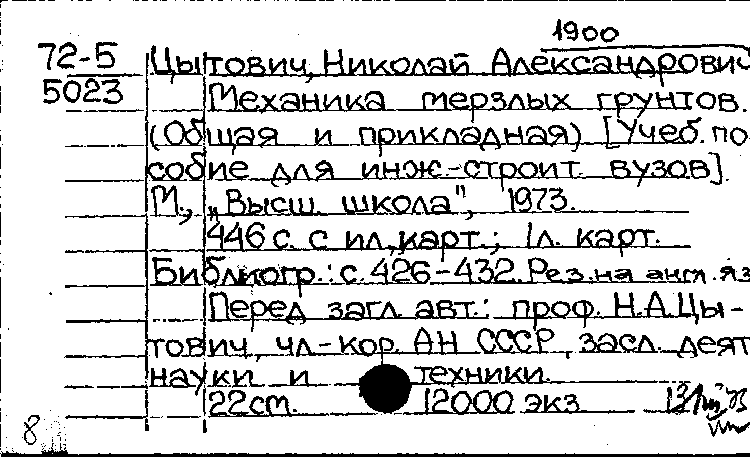 1900
72-5 Цытович, Николай Александрович
5023 Механика мерзлых грунтов.
(Общая и прикладная) [Учеб. по
собие для инж.-строит. вузов].
М., „Высш. школа", 1973.
446 с. с ил., карт.; 1 л. карт.
Библиогр.: с. 426-432. Рез. на англ. яз
Перед загл. авт.: проф. Н.А. Цы-
тович, чл-кор. АН СССР, засл. деят
науки и техники.
22 см. 12000 экз
8